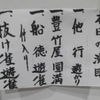 本日の演目
一 他行
一 豊竹屋 圓満
一 船徳 遊雀
仲入り
一 抜け雀 遊雀